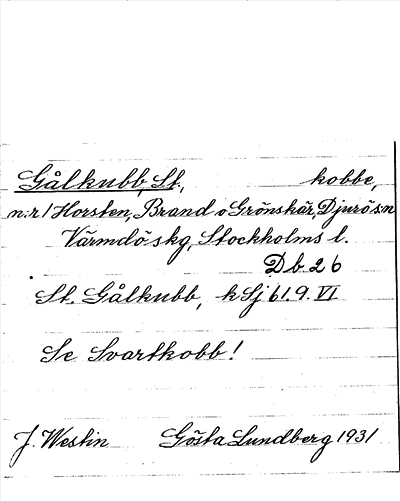 Gålkubb, St., kobbe,
n:r 1 Horsten, Brand o Grönskär, Djurö s:n
Värmdö skg, Stockholms l.
Db 26
St. Gålkubb, kSj 61.9.VI
Se Svartkobb!
J. Westin Gösta Lundberg 1931